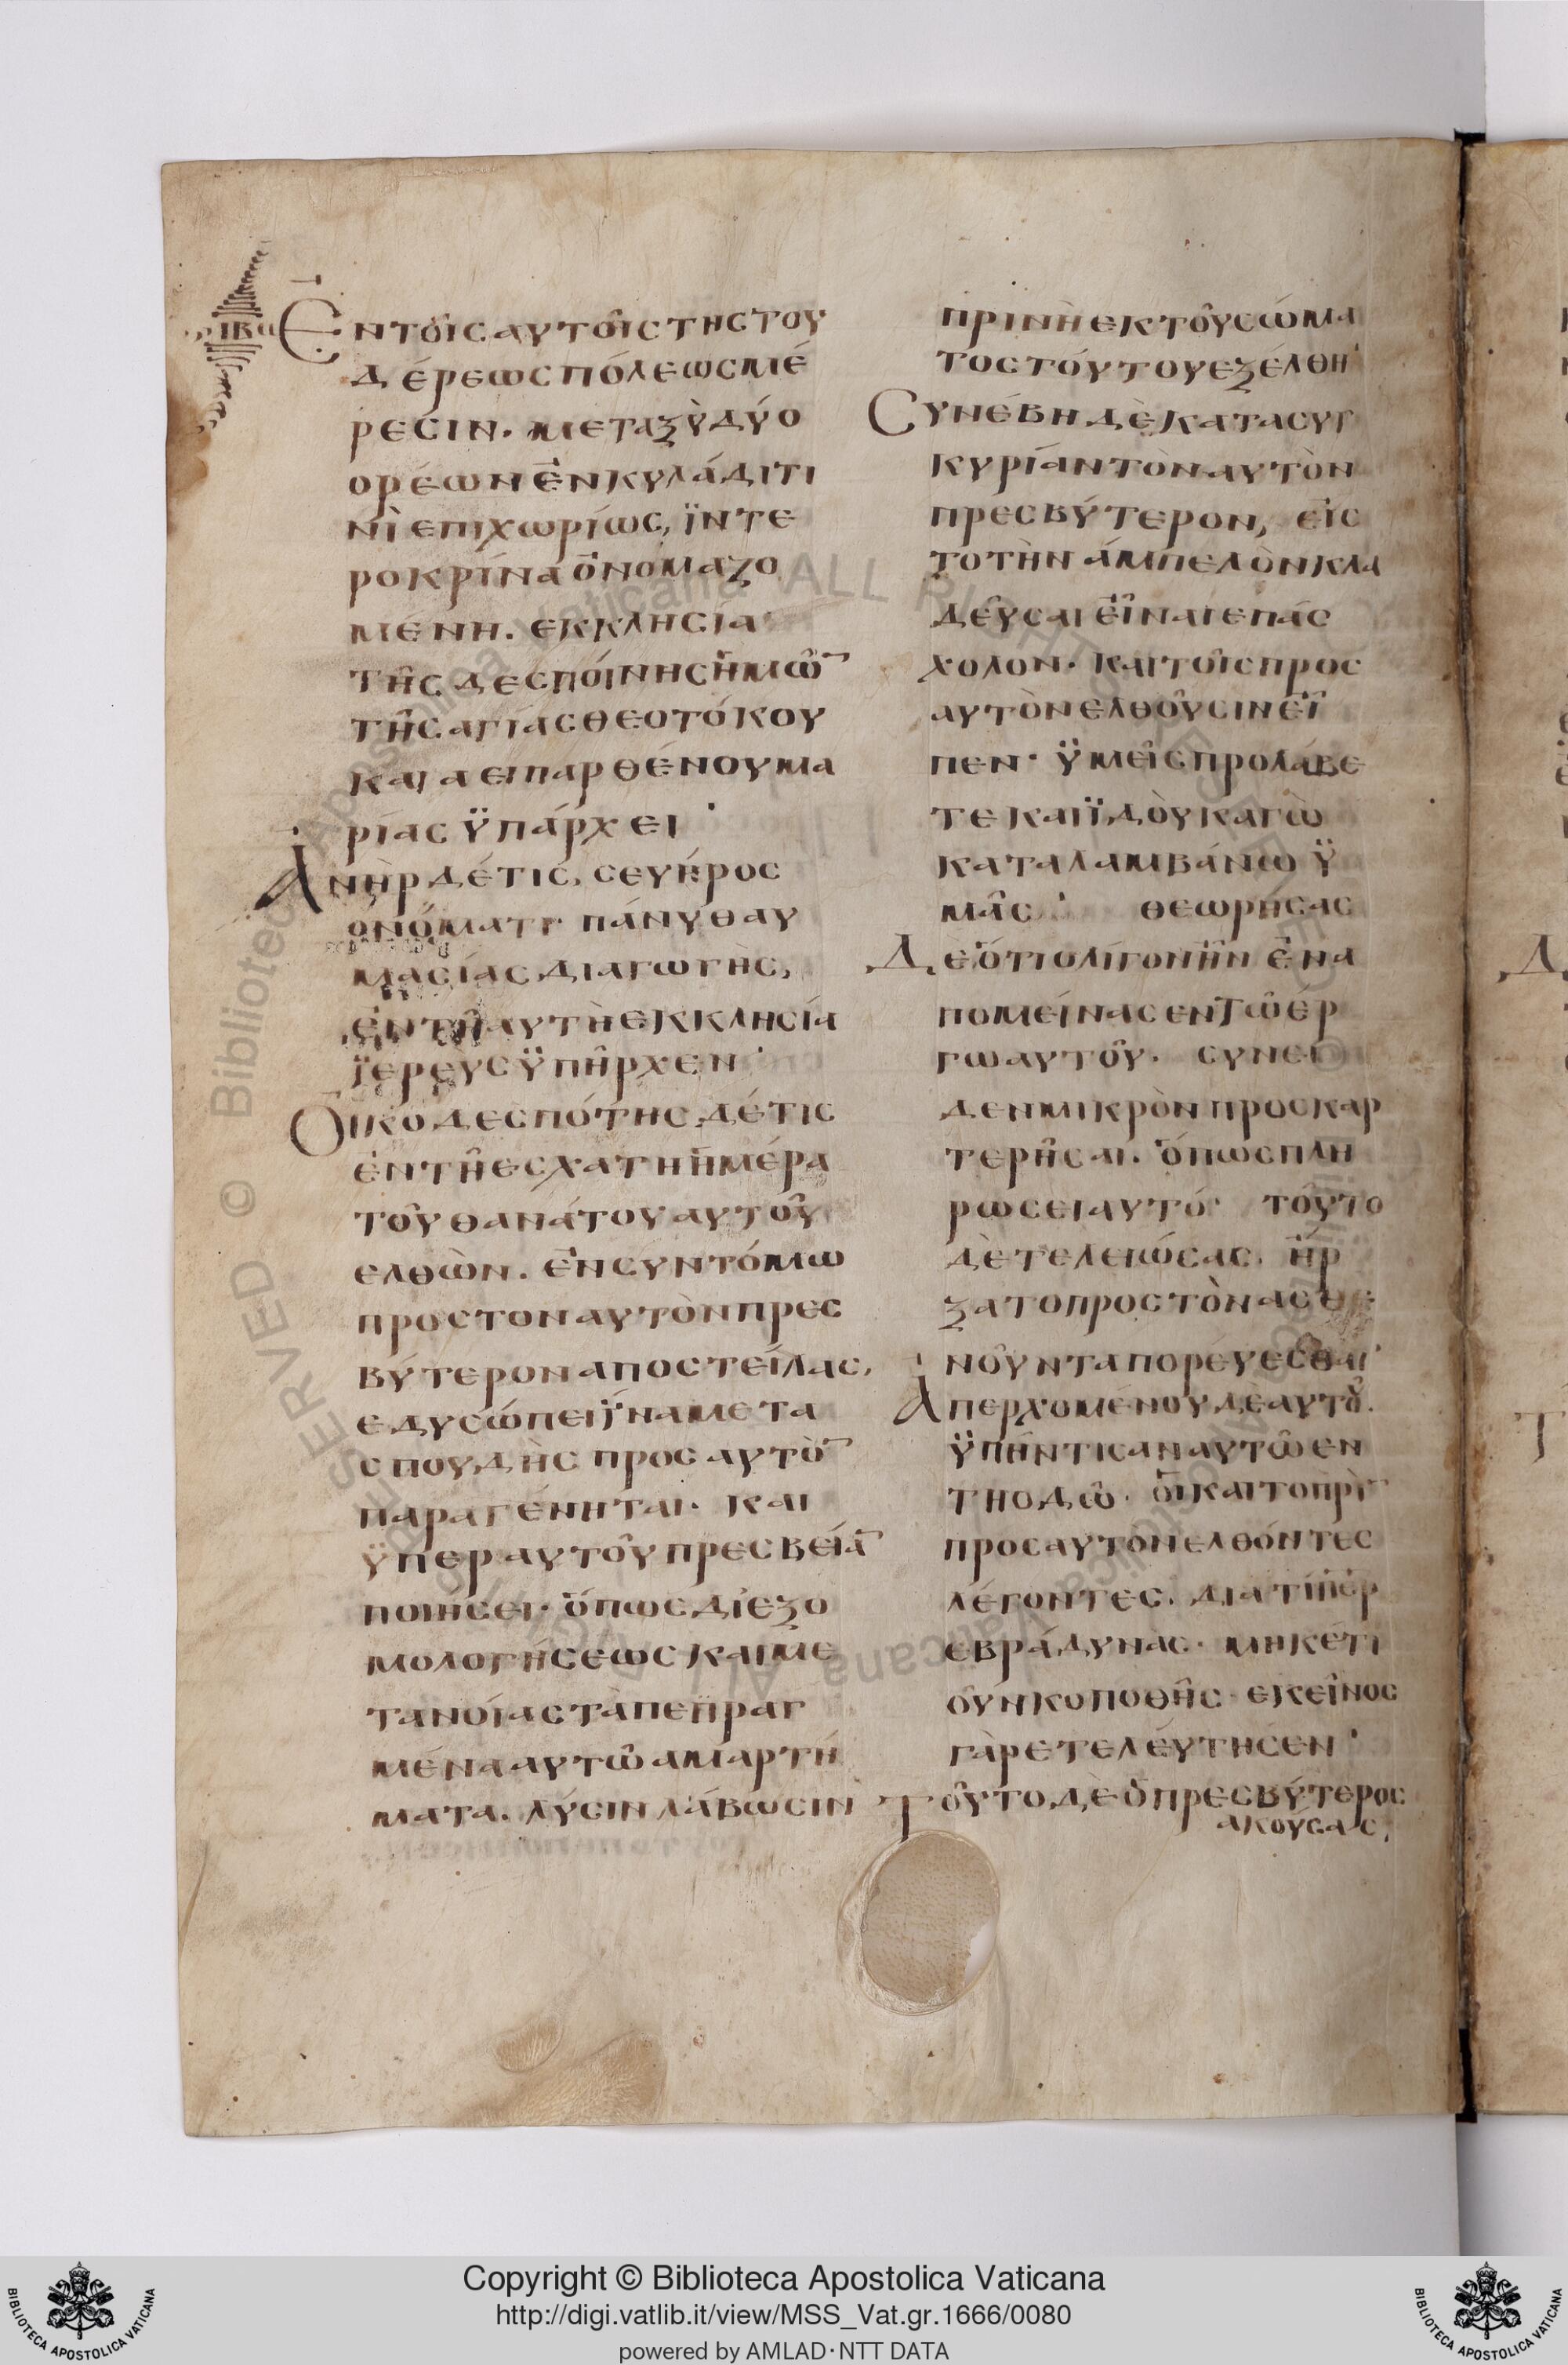 ΙΒ
Ἐν τοῖς αυτοῖς τῆς του
δέρεως πόλεως μέ
ρεσιν. μεταξὺ δύο
ορέων ἐν κυλάδι τι
νὶ επιχωρίως, ϊντε
ροκρίνα ὀνομαζο
μένη. εκκλησία
τῆς δεσποίνης ἡμῶ̅
τῆς αγίας θεοτόκου
και αειπαρθένου μα
ρίας ϋπάρχει·
Ἀνὴρ δέ τις, σευήρος
ονόματι πάνυ θαυ
μασίας διαγωγὴς,
ἐν τῆ αυτὴ εκκλησία
ϊερευς ϋπῆρχεν·
Οικοδεσπότης δέ τις
ἐν τῆ εσχατη ἡμέρα
τοῦ θανάτου αυτοῦ
ελθὼν. ἐν συντόμω
προς τον αυτὸν πρεσ
βύτερον αποστείλας,
εδυσώπει ϊνα μετα
σπουδὴς προς αυτὸ̅
παραγένηται. και
ϋπερ αυτοῦ πρεσβεία̅
ποιήσει· ὅπως δι εξο
μολογήσεως και με
τανοίας τὰ πεπραγ
μένα αυτῶ αμαρτή
ματα. λύσιν λάβωσιν
πρινὴ εκ τοῦ σώμα
τος τόυτου εξέλθη·
Συνέβη δὲ κατα συγ
κυρίαν τὸν αυτὸν
πρεσβύτερον, εἰς
το τὴν άμπελὸν κλα
δεῦσαι εἶναι επάσ
χολον· και τοῖς προς
αυτὸν ελθοῦσιν εἶ
πεν· ϋμεῖς προλάβε
τε και ϊδὸυ καγὼ
καταλαμβάνω ϋ
μᾶς· θεωρήσας
Δε ὅτι ολίγον ἦν ἐνα
πομείνας εν τῶ έρ
γω αυτοῦ. συνεῖ
δεν μικρὸν προσκαρ
τερῆσαι. ὅπως πλη
ρωσει αυτό· τοῦτο
δὲ τελειώσας. ἤρ
ξατο προς τὸν ασθε
νοῦντα πορέυεσθαι·
Ἀπερχομένου δὲ αυτοῦ.
ϋπήντισαν αυτῶ εν
τη οδῶ. οἳ και το πρὶ̅
προς αυτον ελθόντες
λέγοντες. δια τί πὲρ
εβράδυνας· μηκέτι
οῦν κοποθῆς· εκεῖνος
γὰρ ετελέυτησεν·
Τοῦτο δὲ ὁ πρεσβύτερος
ακούσας,
Copyright © Biblioteca Apostolica Vaticana
http://digi.vatlib.it/view/MSS_Vat.gr.1666/0080
powered by AMLAD·NTT DATA
BIBLIOTECA APOSTOLICA VATICANA
BIBLIOTECA APOSTOLICA VATICANA